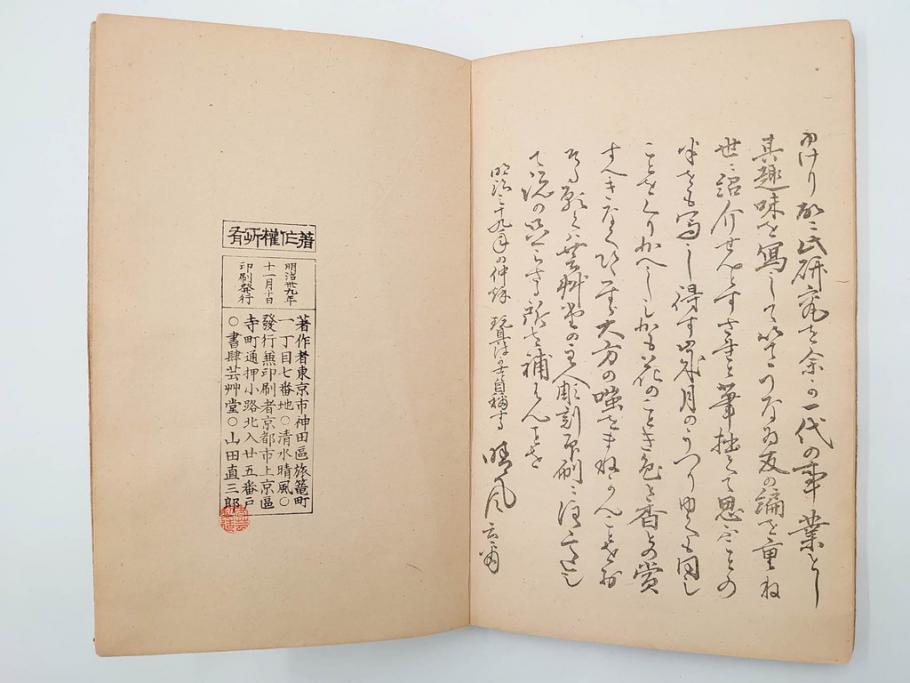 ゆけり 研究を余か一代の事業とし
其趣味を寫して うなゐ友の編を重ね
世ニ紹介せんとすされと筆拙くて思ふことの
半をも寫し得す歳月のうつりゆくも同し
ことをくりかへししかも花のことき色と香との賞
すへきなく 大方の嗤をまねかんことをお
そる願くハ芸艸堂の主人彫刻印刷ニ注意し
て の足らさる所を補はんことを
明治三十九年の仲秋 晴風
著作權所有
明治卅九年
十一月十日
印刷發行
著作者東京市神田區旅籠町
一丁目七番地○清水晴風○
發行兼印刷者京都市上京區
寺町通押小路北入廿五番戸
○書肆芸艸堂○山田直三郎